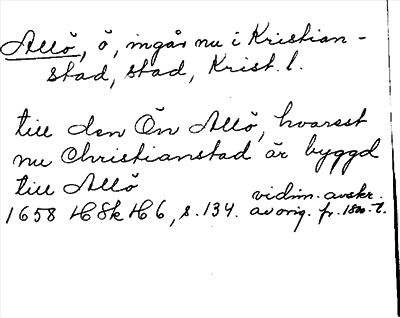 Allö, ö, ingår nu i Kristian-
stad, stad, Krist. l.
till den Ön Allö, hvarest
nu Christianstad är byggd
till Allö
vidim. avskr.
1658 HSk H6, s. 134. av orig. fr. 1800-t.